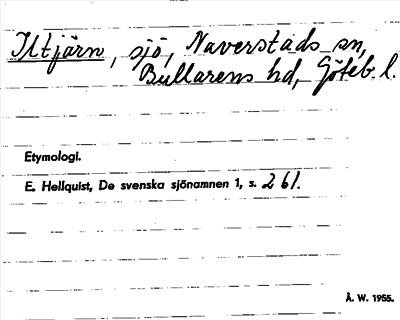 Iltjärn, sjö, Naverstads sn,
Bullarens hd, Göteb. l.
Etymologi.
E. Hellquist, De svenska sjönamnen 1, s. 261.
Å. W. 1955.